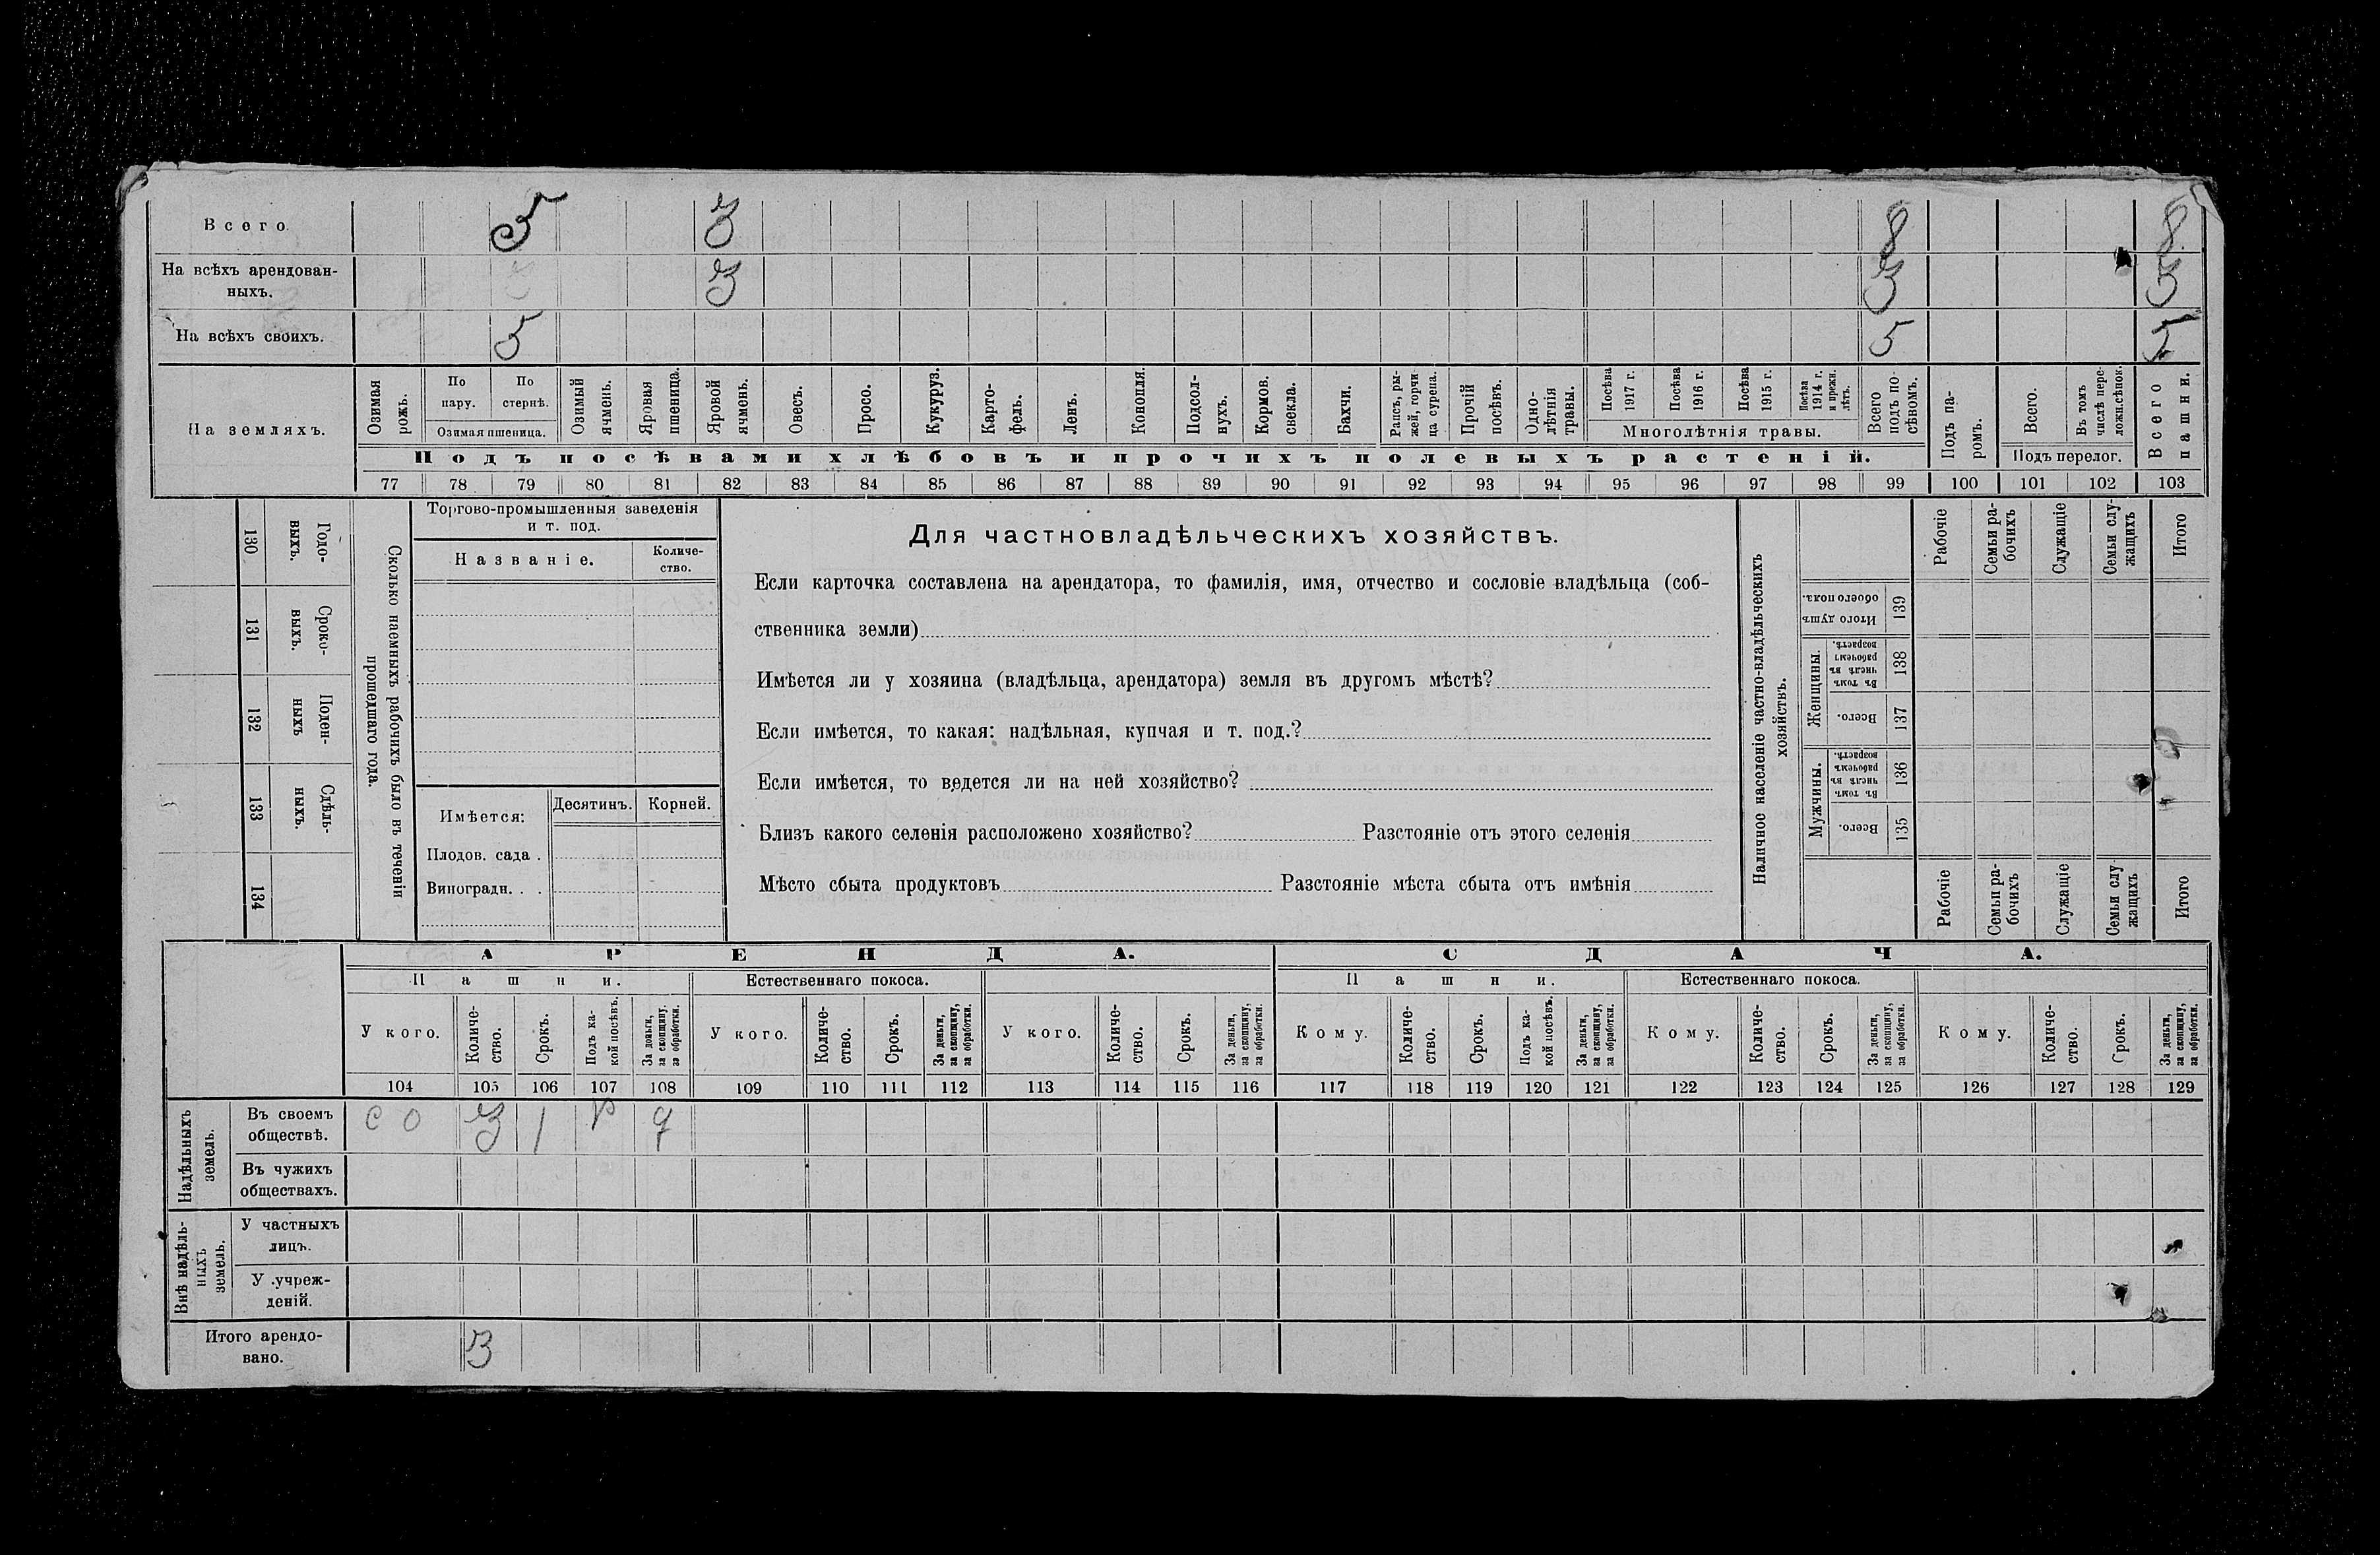 Всего. 5 3 8 8
На всѣхъ арендован-
ныхъ. 3 3 3
На всѣхъ своихъ. 5 5 5
На земляхъ.
Озимая рожь.
По пару.
По стернѣ.
Озимая пшеница.
Озимый ячмень.
Яровая пшеница.
Яровой ячмень.
Овесъ.
Просо.
Кукуруз.
Карто-
фель.
Ленъ.
Конопля.
Подсол-
нухъ.
Кормов.
свекла.
Бахчи.
Рапсъ, ры-
жей, горчи-
ца сурепа.
Прочій
посѣвъ.
Одно-
лѣтнія
травы.
Посѣва
1917 г.
Посѣва
1916 г.
Посѣва
1915 г.
Посѣва
1914 г.
и прежн.
лѣтъ.
Многолѣтнія травы.
Всего
подъ по-
сѣвомъ.
Подъ па-
ромъ.
Всего.
Въ томъ
числѣ пере-
ложн.сѣнок.
Подъ перелог.
Всего
пашни.
Подъ посѣвами хлѣбовъ и прочихъ полевыхъ растеній.
77 78 79 80 81 82 83 84 85 86 87 88 89 90 91 92 93 94 95 96 97 98 99 100 101 102 103
130 Годо-
выхъ.
131 Сроко-
выхъ.
132 Поден-
ныхъ
133 Сдѣль-
ныхъ.
134
Сколько наемныхъ рабочихъ было въ теченіи
прошедшаго года.
Торгово-промышленныя заведенія
и т. под.
Названіе.
Количе-
ство.
Имѣется:
Десятинъ. Корней.
Плодов. сада .
Виноградн. . .
Для частновладѣльческихъ хозяйствъ.
Если карточка составлена на арендатора, то фамилія, имя, отчество и сословіе владѣльца (соб-
ственника земли)
Имѣется ли у хозяина (владѣльца, арендатора) земля въ другомъ мѣстѣ?
Если имѣется, то какая: надѣльная, купчая и т. под.?
Если имѣется, то ведется ли на ней хозяйство?
Близъ какого селенія расположено хозяйство? Разстояніе отъ этого селенія
Мѣсто сбыта продуктовъ Разстояніе мѣста сбыта отъ имѣнія
Наличное населеніе частно-владѣльческихъ
хозяйствъ.
Рабочіе
Семьи ра-
бочихъ
Служащіе
Семьи слу-
жащихъ
Итого
Итого душъ
обоего пола.
139
Женщины.
Въ томъ
числѣ въ
рабочемъ
возрастѣ.
138
Всего.
137
Мужчины.
Въ томъ
числѣ въ
рабочемъ
возрастѣ.
136
Всего.
135
Рабочіе
Семьи ра-
бочихъ
Служащіе
Семьи слу
жащихъ
Итого
АРЕНДА. СДАЧА.
Пашни. Естественнаго покоса. Пашни. Естественнаго покоса.
У кого.
Количе-
ство.
Срокъ.
Подъ ка-
кой посѣвъ.
За деньги,
за скопщину,
за обработки.
У кого.
Количе-
ство.
Срокъ.
За деньги,
за скопщину,
за обработки.
У кого.
Количе-
ство.
Срокъ.
За деньги,
за скопщину,
за обработки.
Кому.
Количе-
ство.
Срокъ.
Подъ ка-
кой посѣвъ.
За деньги,
за скопщину,
за обработки.
Кому.
Количе-
ство.
Срокъ.
За деньги,
за скопщину,
за обработки.
Кому.
Количе-
ство.
Срокъ.
За деньги,
за скопщину,
за обработки.
104 105 106 107 108 109 110 111 112 113 114 115 116 117 118 119 120 121 122 123 124 125 126 127 128 129
Надѣльныхъ
земель.
Въ своемъ
обществѣ.
с о 3 1
Въ чужихъ
обществахъ.
Внѣ надѣль-
ныхъ
земель.
У частныхъ
лицъ.
У учреж-
деній.
Итого арендо-
вано.
3